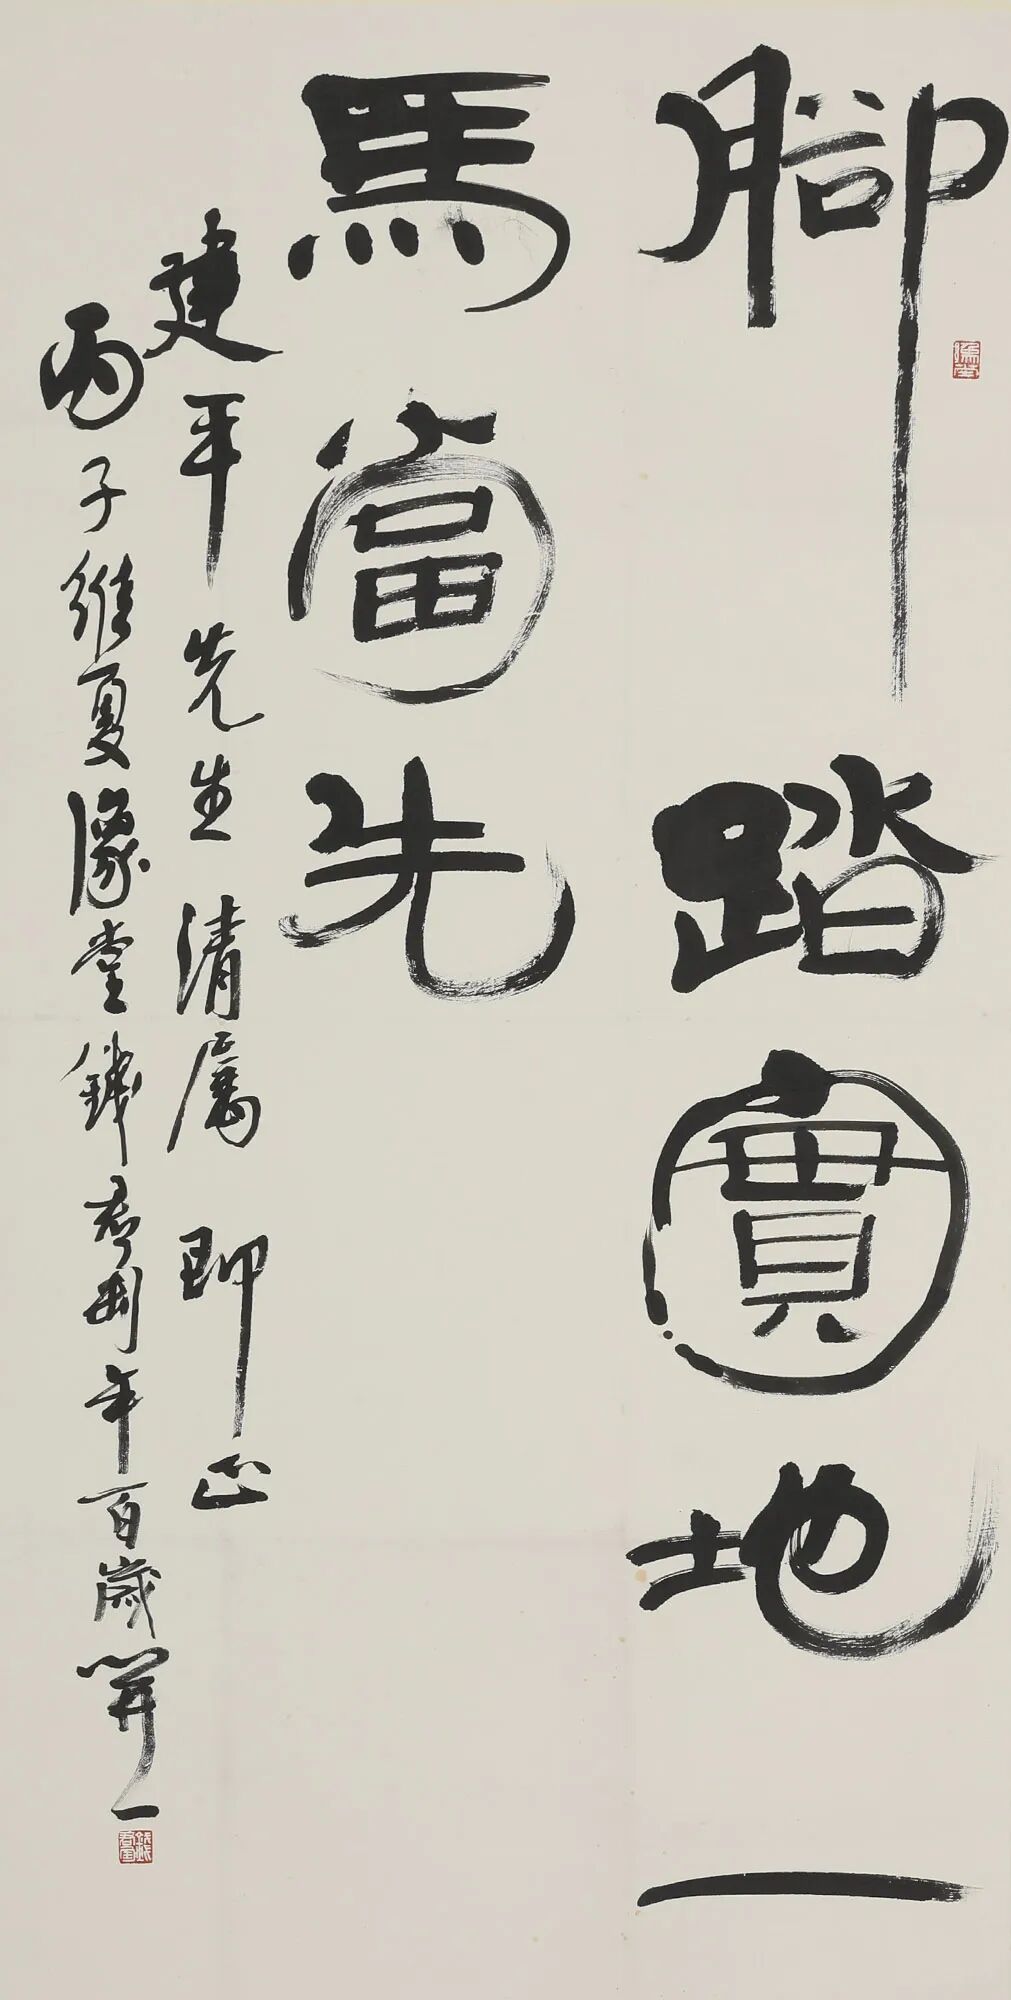 腳踏實地一
馬當先
建平先生清屬 即正
丙子維夏濠堂錢君匋年百歲開一